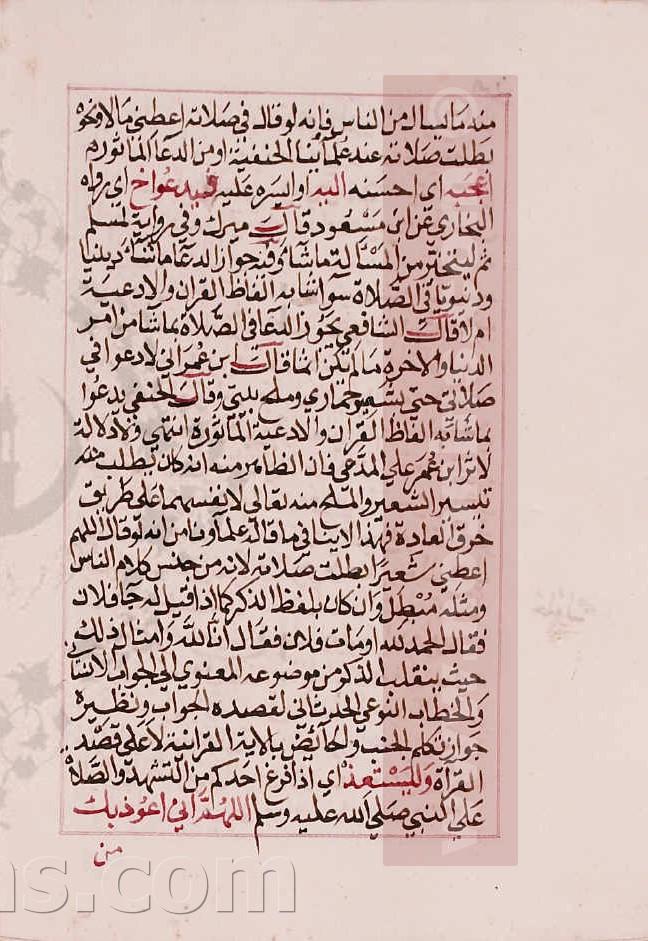 منه ما يسال من الناس فانه لو قال في صلاته اعطني مالا ونحوه
بطلت صلاته عند علمائنا الحنفية او من الدعا الماثوره
اعجبه اي احسنه اليه او ايسره عليه فيدعو اخ اي رواه
البخاري عن ابن مسعود قال ميرك وفي رواية لمسلم
ثم ليتخير من المسألة ما شا وفيه جواز الدعا ما شاء دينيا
ودنيويا في الصلاة سوا شابه الفاظ القران والادعية
ام لا قال الشافعي يجوز الدعا في الصلاة بما شا من امر
الدنيا والاخرة ما لم يكن اثما قال ابن عمر اني لادعوا في
صلاتي حتى بشعير حماري وملح بيتي وقال الحنفي يدعوا
بما شابه الفاظ القران والادعية الماثورة انتهي ولا دلالة
لاثر ابن عمر علي المدعي فان الظاهر منه انه كان يطلب منه
تيسير الشعير والملح منه تعالي لا بنفسهما على طريق
خرق العادة فهذا لا ينافي ما قاله علماونا من انه لو قال اللهم
اعطني شعيرا بطلت صلاته لانه من جنس كلام الناس
ومثله مبطل وان كان بلفظ الذكر كما اذا قيل له جا فلان
فقال الحمد لله او مات فلان فقال انا لله وامثال ذلك
حيث ينقلب الذكر من موضوعه المعنوي الي الجواب الانساني
والخطاب النوعي الحدثاني لقصده الجواب ونظيره
جواز تكلم الجنب والحائض بالاية القرانية لا على قصد
القرآة وليستعذ اي اذا فرغ احدكم من التشهد والصلاة
على النبي صلي الله عليه وسلم اللهم اني اعوذ بك
من
ns.com